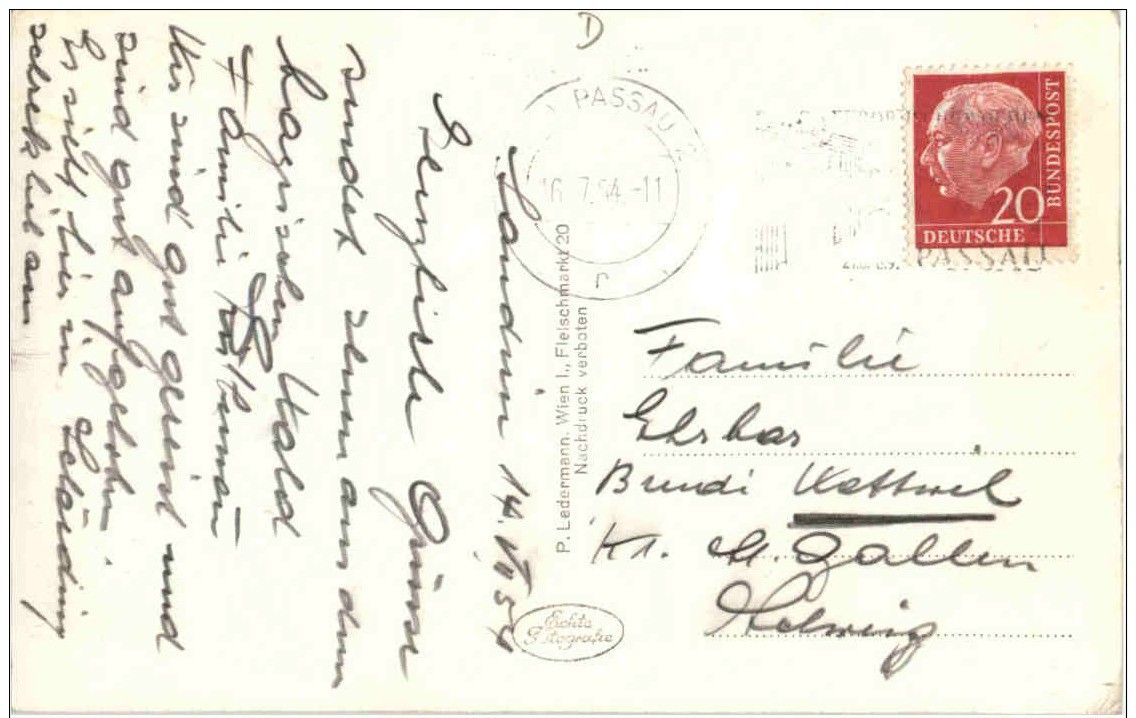 D
PASSAU
16.7.54.-11
r
PASSAU
20
DEUTSCHE
BUNDESPOST
14. VII 54
Herzliche Grüsse
sendet Ihnen aus dem
Bayrischen Wald
Familie
Wir sind gut gereist und
sind gut aufgehoben.
Es hier in
P. Ledermann, Wien I., Fleischmarkt 20
Nachdruck verboten
Echte
Fotografie
Familie
Ehrbar
Bundi Wattwil
Kt. St. Gallen
Schweiz